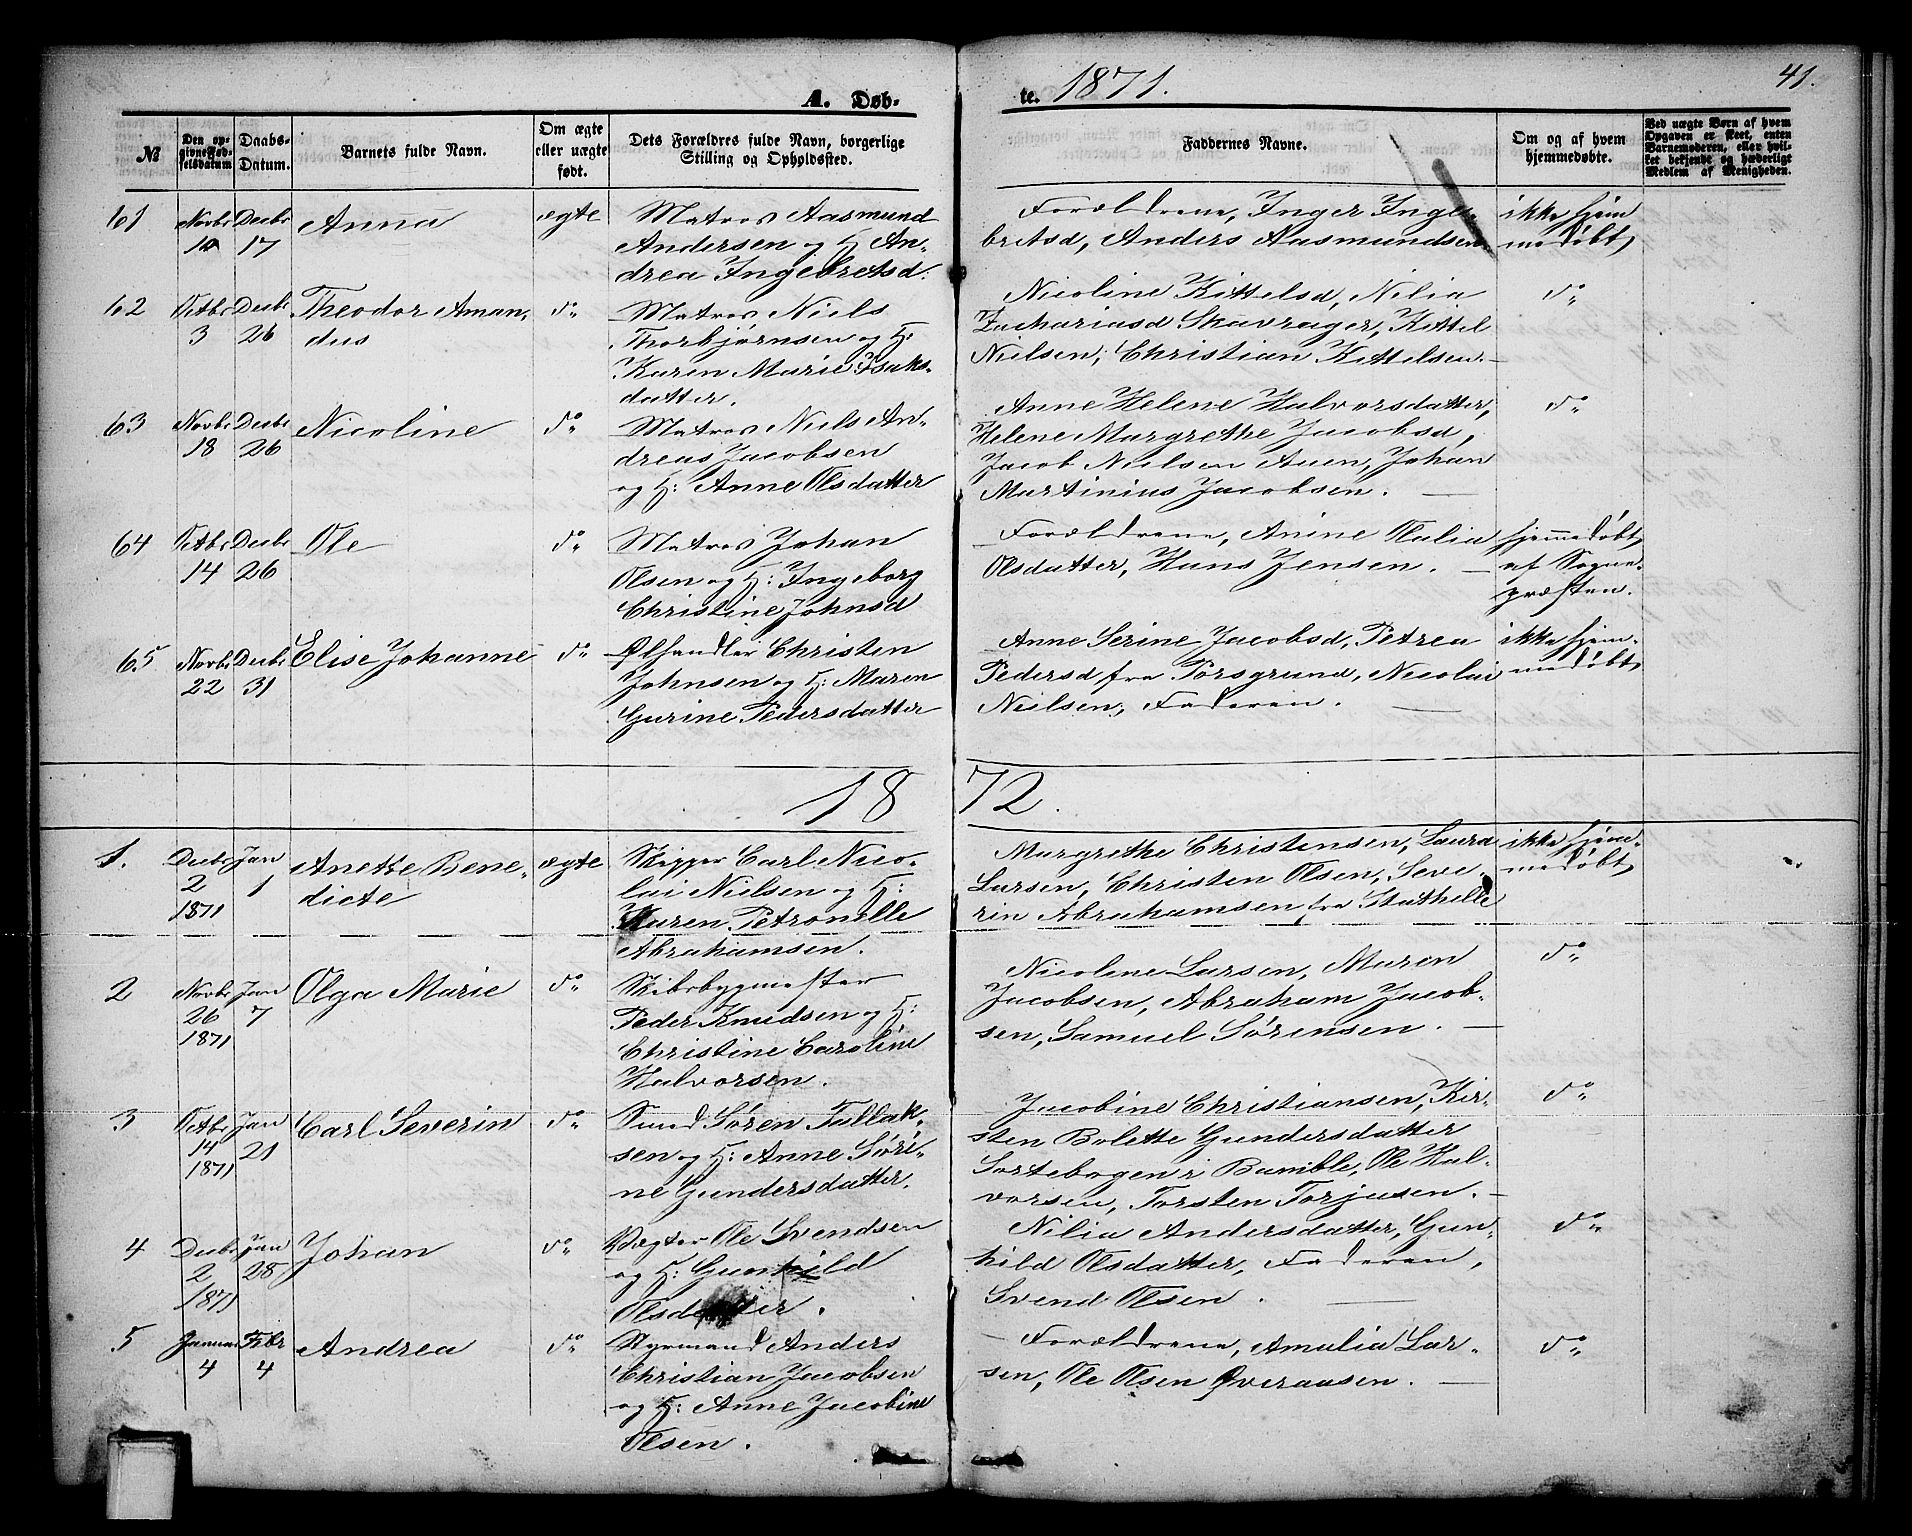 A. Døb- te. 1871. 41.
№
Den opgivne Fødselsdatum
Daabs-Datum.
Barnets fulde Navn.
Om ægte eller uægte født.
Dets Forældres fulde Navn, borgerlige Stilling og Opholdssted.
Faddernes Navne.
Om og af hvem hjemmedøbte.
Ved uægte Børn af hvem Opgaven er skeet, enten Barnemoderen, eller hvilket bekjendt og hæderligt Medlem af Menigheden.
61 Novbr 10 Decbr 17 Anna ægte
Matros Aasmund
Andersen og H. An-
drea Ingebretsd.
Forældrene, Inger Inge-
bretsd, Anders Aasmundsen
ikke hjem
medøbt
62 Octbr 3 Decbr 26 Theodor Aman-
dus do
Matros Niels
Thorbjørnsen og H:
Karen Marie Isaks-
datter.
Nicoline Kittelsd, Nilia
Zachariasd Skavrager, Kittel
Nielsen, Christian Kittelsen.
do
63 Novbr 18 Decbr 26 Nicoline do
Matros Niels An-
dreas Jacobsen
og H: Anne Olsdatter
Anne Helene Halvorsdatter,
Helene Margrethe Jacobsd,
Jacob Nielsen Auen, Johan
Martinius Jacobsen.
do
64 Octbr 14 Decbr 26 Ole do
Matros Johan
Olsen og H: Ingeborg
Christine Johnsd
Forældrene, Anine Olulia
Olsdatter, Hans Jensen.
hjemmedøbt
af Sogne-
præsten.
65 Novbr 22 Decbr 31 Elise Johanne do
Ølhandler Christen
Johnsen og H: Maren
Gurine Pedersdatter
Anne Serine Jacobsd, Petrea
Pedersd fra Porsgrund, Nicolai
Nielsen, Faderen.
ikke hjem-
medøbt
1872.
1. Decbr 2 1871 Jan 1 Anette Bene-
dicte ægte
Skipper Carl Nico-
lai Nielsen og H:
Karen Petronelle
Abrahamsen.
Margrethe Christensen, Laura
Larsen, Christen Olsen, Seve-
rin Abrahamsen fra Stathelle
ikke hjem-
medøbt
2 Novbr 26 1871 Jan 7 Olga Marie do
Skibsbygmester
Peder Knudsen og H:
Christine Caroline
Halvorsen.
Nicolene Larsen, Maren
Jacobsen, Abraham Jacob-
sen, Samuel Sørensen.
do
3 Octbr 14 1871 Jan 21 Carl Severin do
Smed Søren Tallak-
sen og H: Anne Søri-
ne Gundersdatter.
Jacobine Christiansen, Kir-
sten Bolette Gundersdatter
Sortebogen i Bamble, Ole Hal-
vorsen, Torsten Torjusen.
do
4 Decbr 2 1871 Jan 28 Johan do
Vægter Ole Svendsen
og H: Gunhild
Olsdatter.
Nilia Andersdatter, Gun-
hild Olsdatter, Faderen,
Svend Olsen.
do
5 Januar 4 Febr 4 Andrea do
Styrmand Anders
Christian Jacobsen
og H: Anne Jacobine
Olsen.
Forældrene, Amalia Lar-
sen, Ole Olsen Øveraasen.
do